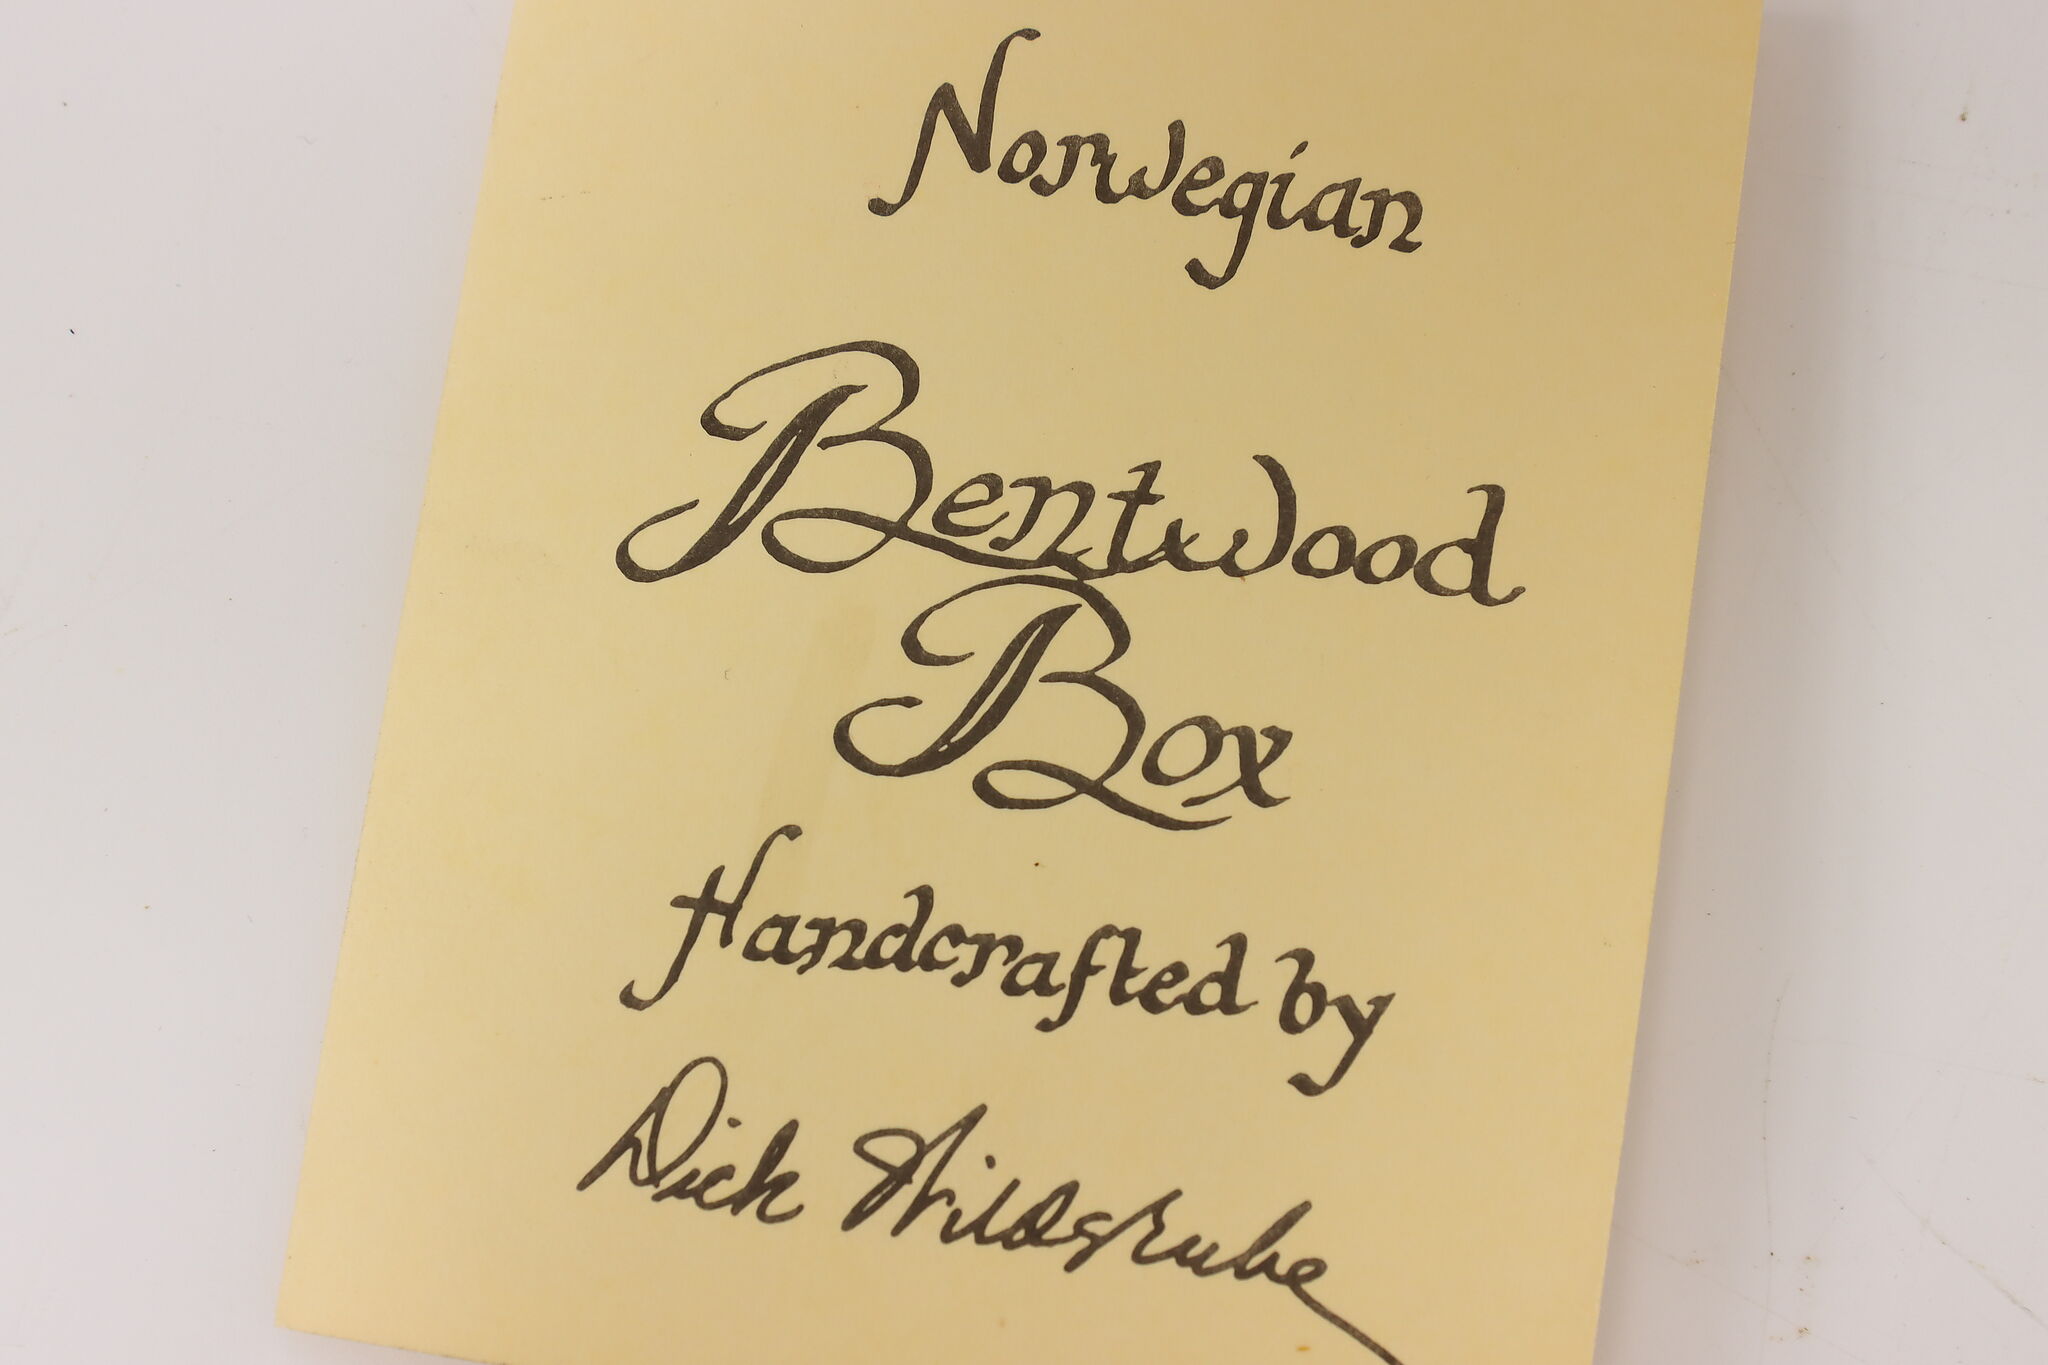 Norwegian
Bentwood
Box
Handcrafted by
Dick Wildgrube